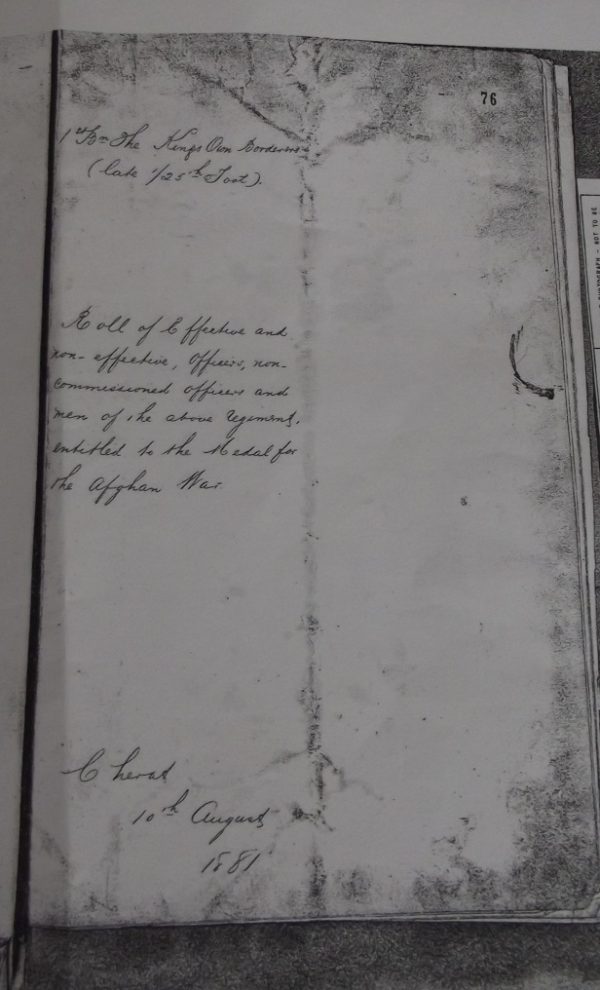 76
1st Bn The Kings Own Borderers
(late 1/25th Foot).
Roll of Effective and
non-effective, Officers, non-
commissioned officers and
men of the above Regiment,
entitled to the Medal for
the Afghan War
Cherat
10th August
1881
NOT TO BE